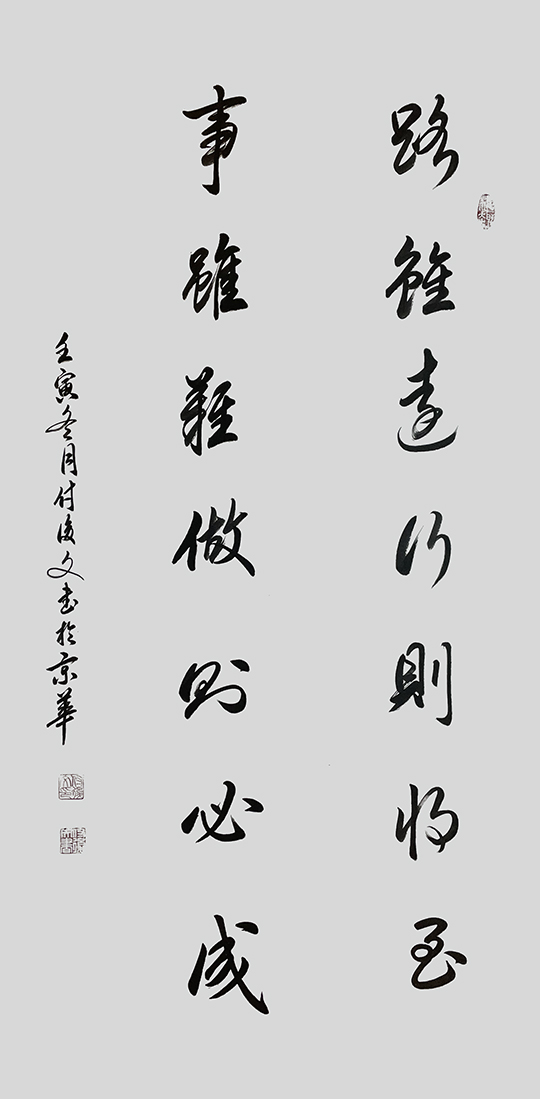 路雖遠行則將至
事雖難做則必成
壬寅冬月付俊文書於京華